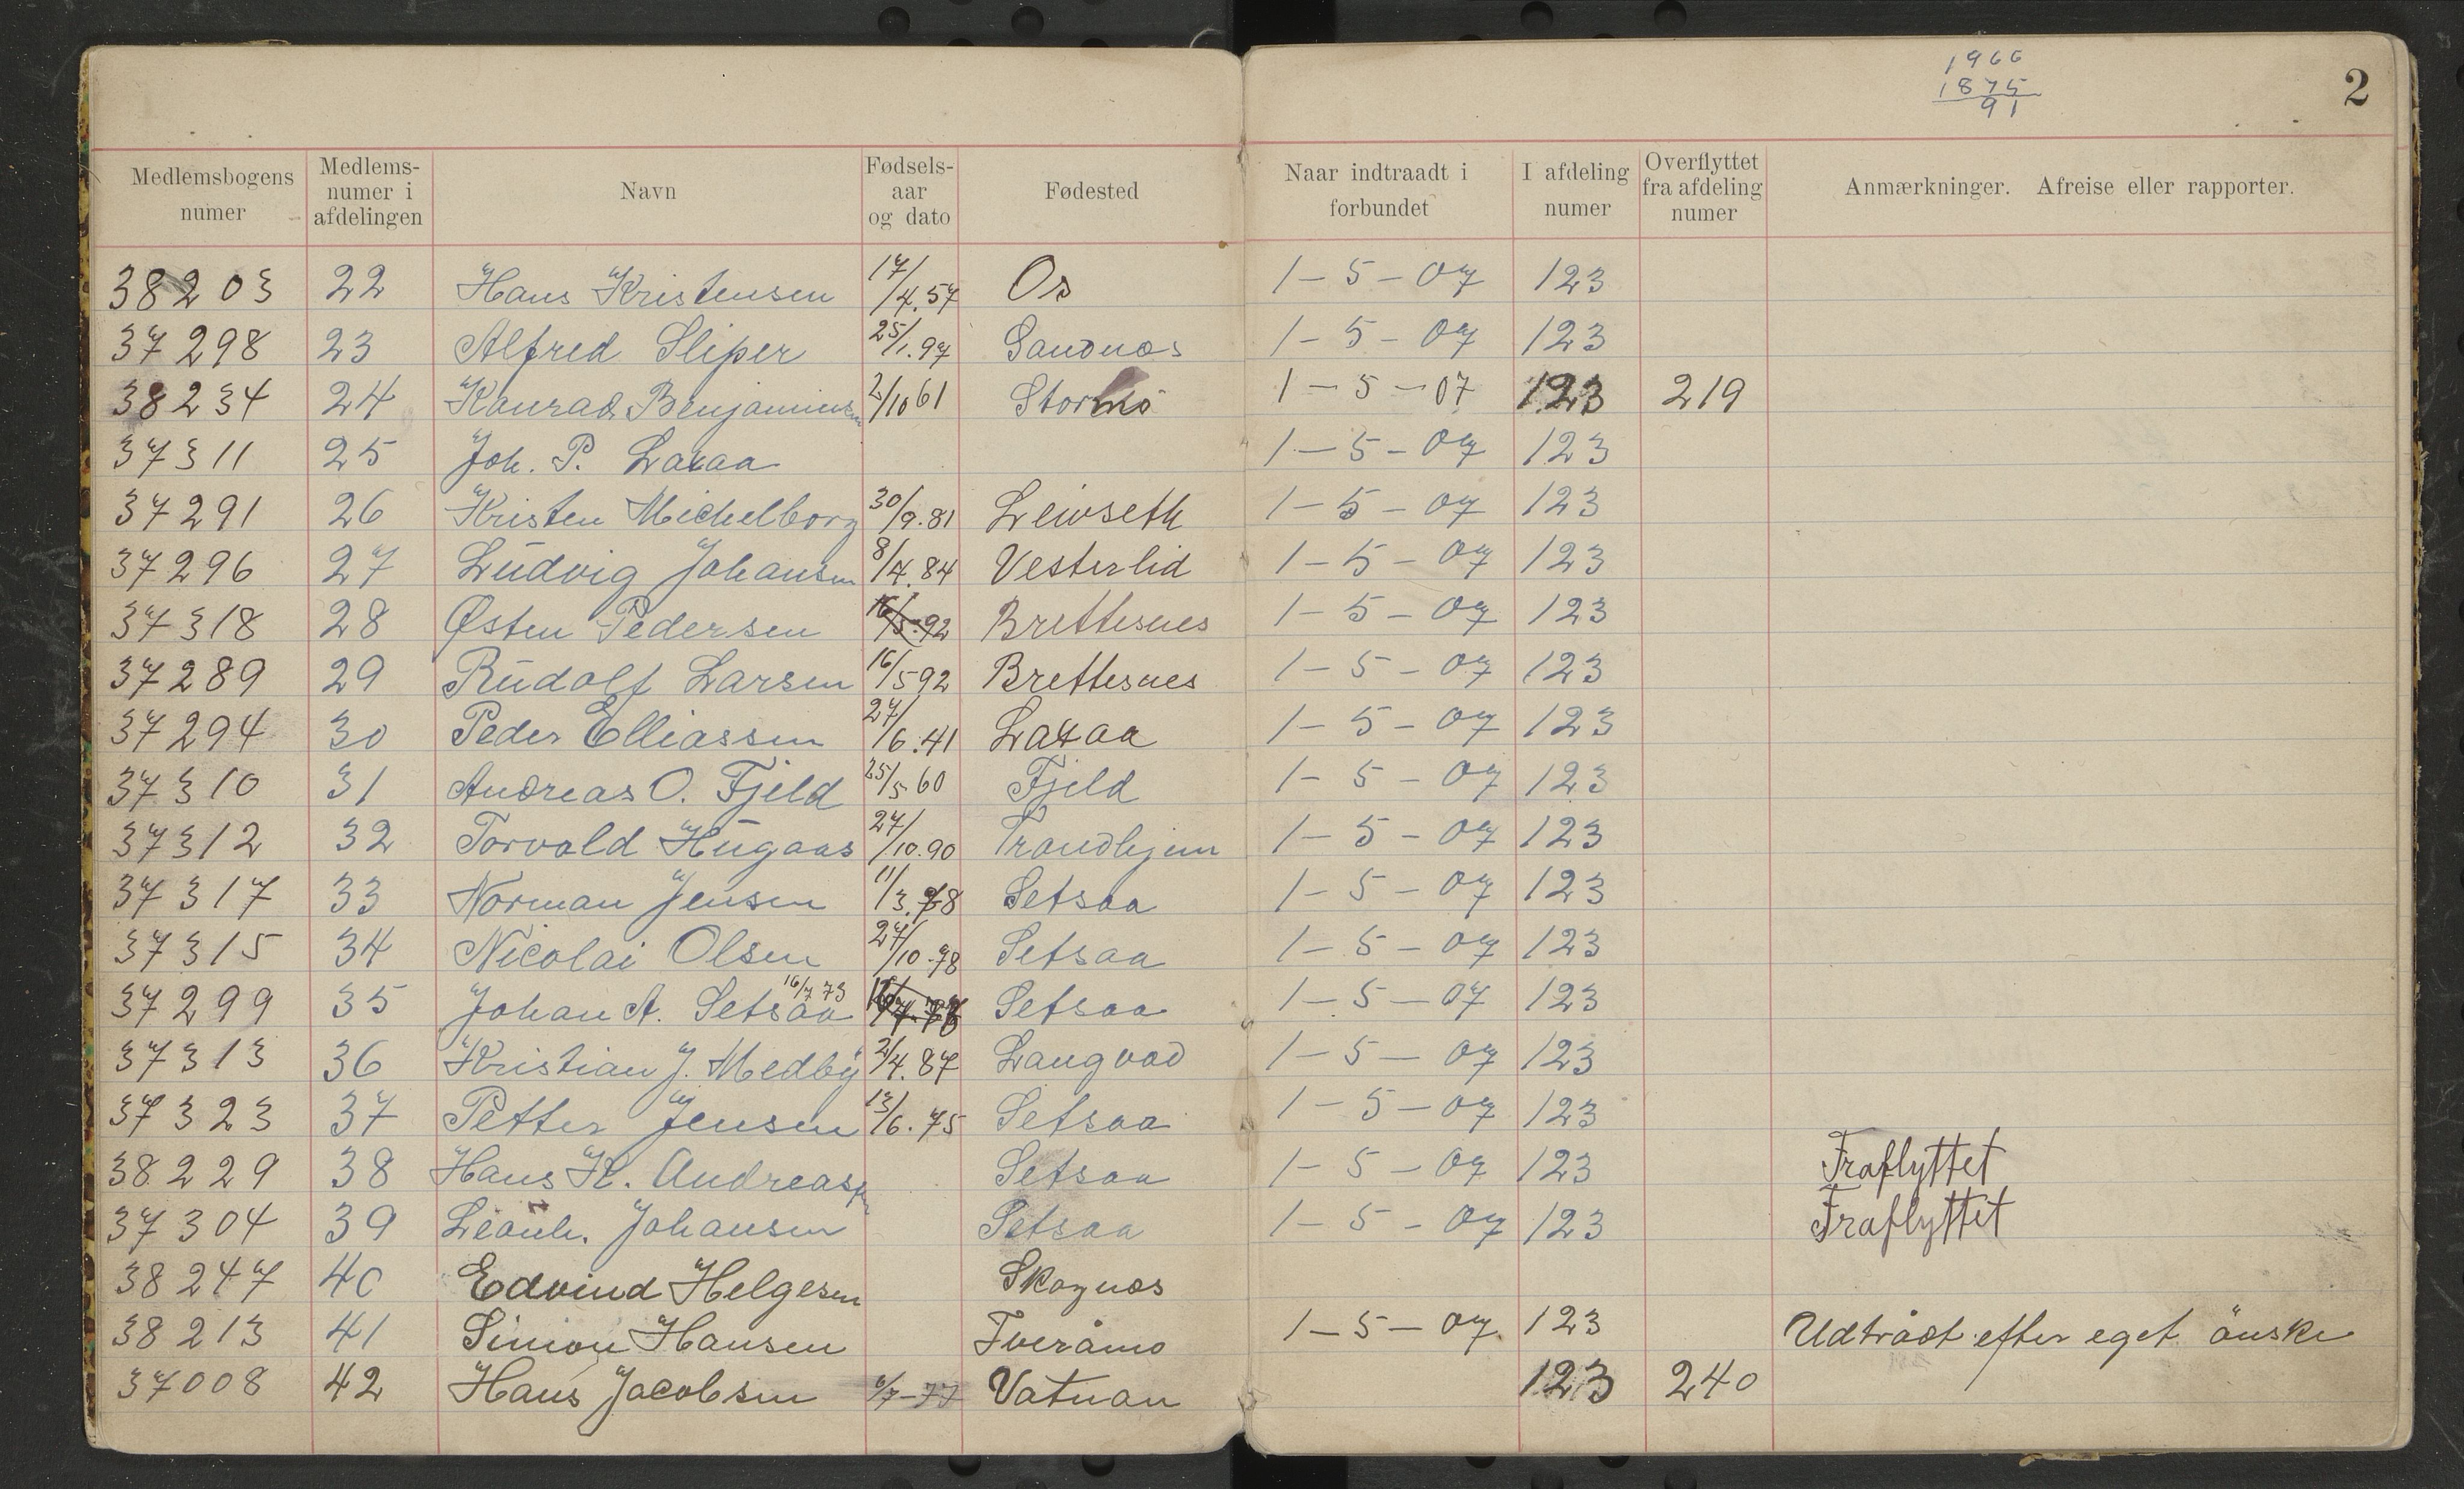 1966
1875
91
2
Medlemsbogens numer | Medlems-numer i afdelingen | Navn | Fødsels-aar og dato | Fødested | Naar indtraadt i forbundet | I afdeling numer | Overflyttet fra afdeling numer | Anmærkninger. Afreise eller rapporter.
38203 22 Hans Kristensen 17/4.57 Os 1-5-07 123
37298 23 Alfred Sliper 25/1.97 Sandnæs 1-5-07 123
38234 24 Konrad Benjaminsen 2/10 61 Stormo 1-5-07 123 219
37311 25 Joh. P. Laxaa 1-5-07 123
37291 26 Kristen Michelborg 30/9.81 Leivseth 1-5-07 123
37296 27 Ludvig Johansen 8/4.84 Vesterlid 1-5-07 123
37318 28 Østen Pedersen 16/5.92 Brettesnes 1-5-07 123
37289 29 Rudolf Larsen 16/5 92 Brettesnes 1-5-07 123
37294 30 Peder Elliassen 27/6.41 Laxaa 1-5-07 123
37310 31 Andreas O. Fjeld 25/5 60 Fjeld 1-5-07 123
37312 32 Torvald Hugaas 27/10.90 Trondhjem 1-5-07 123
37317 33 Norman Jensen 11/3.78 Setsaa 1-5-07 123
37315 34 Nicolai Olsen 27/10.78 Setsaa 1-5-07 123
37299 35 Johan A. Setsaa 16/7 73 Setsaa 1-5-07 123
37313 36 Kristian J. Medby 2/4.87 Langvad 1-5-07 123
37323 37 Petter Jensen 13/6.75 Setsaa 1-5-07 123
38229 38 Hans K. Andreasen Setsaa 1-5-07 123 Fraflyttet
37304 39 Leonh. Johansen Setsaa 1-5-07 123 Fraflyttet
38247 40 Edvind Helgesen Skognæs
38213 41 Simon Hansen Tveråmo 1-5-07. 123 Udtrådt efter eget önske
37008 42 Hans Jacobsen 6/7-77 Vatnan 123 240